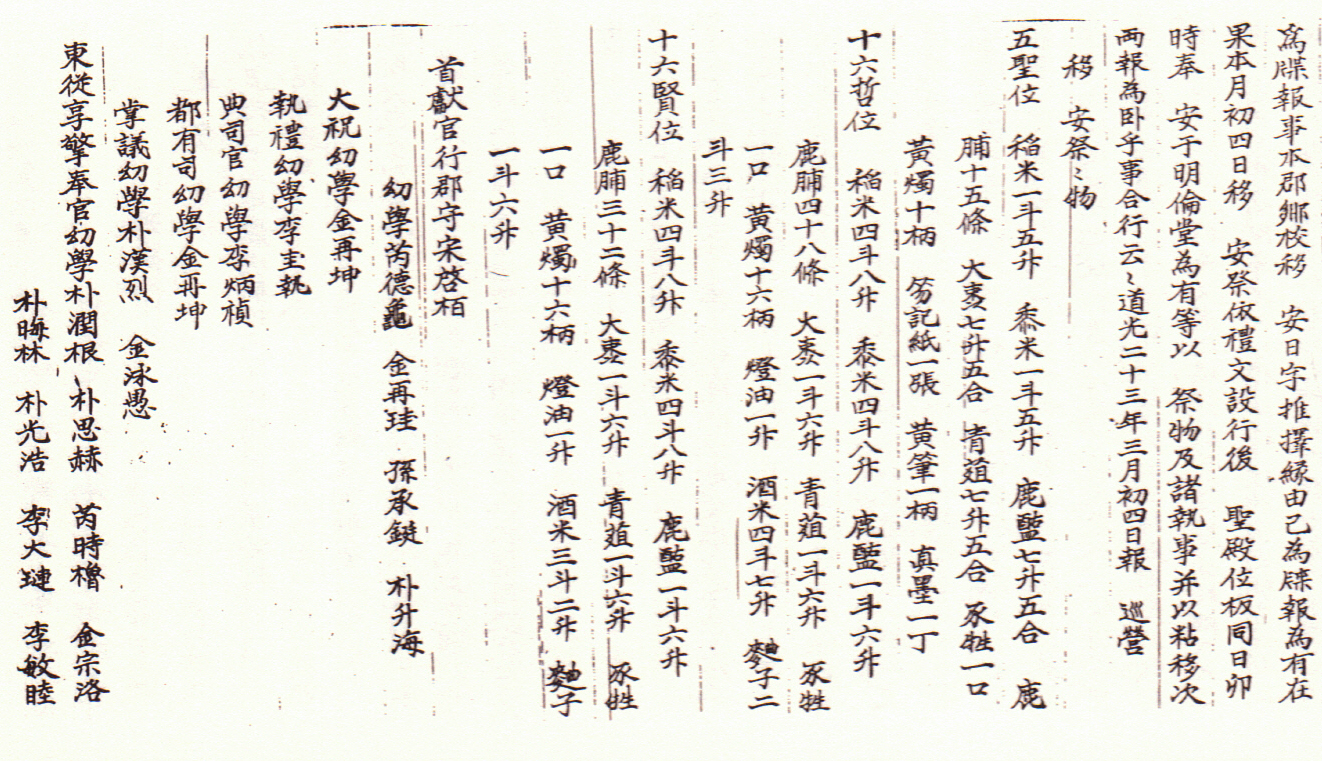 為牒報事本郡鄕校移 安日字推擇緣由已為牒報為有在
果本月初四日移 安祭依禮文設行後 聖殿位板同日卯
時奉 安于明倫堂為有等以 祭物及諸執事并以粘移次
両報為卧乎事合行云〻道光二十三年三月初四日報 巡營
移 安祭〻物
五聖位 稻米一斗五升 黍米一斗五升 鹿醢七升五合 鹿
脯十五條 大棗七升五合 青葅七升五合 豕牲一口
黃燭十柄 笏記紙一張 黃筆一柄 真墨一丁
十六哲位 稻米四斗八升 黍米四斗八升 鹿醢一斗六升
鹿脯四十八條 大棗一斗六升 青葅一斗六升 豕牲
一口 黃燭十六柄 燈油一升 酒米四斗七升 麯子二
斗三升
十六賢位 稻米四斗八升 黍米四斗八升 鹿醢一斗六升
鹿脯三十二條 大棗一斗六升 青葅一斗六升 豕牲
一口 黃燭十六柄 燈油一升 酒米三斗二升 麯子
一斗六升
首獻官行郡守宋啓栢
幼學芮德龜 金再珪 孫承鋌 朴升海
大祝幼學金再坤
執禮幼學李圭執
典司官幼學李炳禎
都有司幼學金再坤
掌議幼學朴漢烈 金泳愚
東從享擎奉官幼學朴潤根 朴思赫 芮時櫓 金宗洛
朴晦林 朴光浩 李大璉 李敏睦